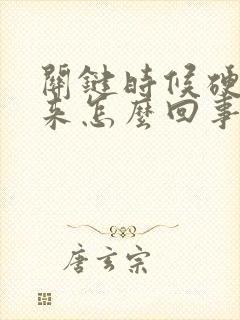 關鍵時候硬
來怎麼回事
唐玄宗